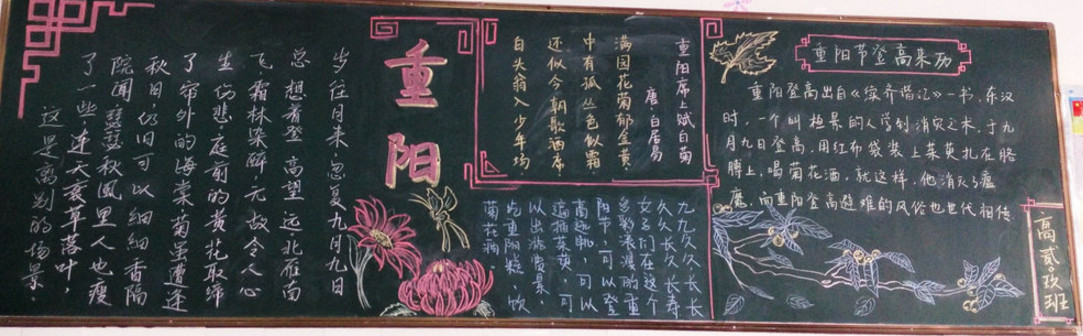 重阳
岁往月来,忽复九月九日
总想着登高望远,北雁南
飞,霜林染醉,无故令人心
生伤悲.庭前的黄花取缔
了帘外的海棠,菊虽遭逢
秋日,仍旧可以细细香隔
院闻,瑟瑟秋风里人也瘦
了一些,连天衰草落叶,
这是离别的场景.
重阳席上赋白菊
唐白居易
满园花菊郁金黄,
中有孤丛色似霜.
还似今朝歌酒席
白头翁入少年场
九九久久,长长
久久,长长寿
女子们在这个
色彩浪漫的重
阳节,可以登
高远眺,可以
遍插茱萸,可
以出游赏景,
吃重阳糕,饮
菊花酒.
重阳节登高来历
重阳登高出自《续齐谐记》一书,东汉
时,一个叫桓景的人学到消灾之术,于九
月九日登高,用红布袋装上茱萸扎在胳
膊上,喝菊花酒,就这样,他消灭了瘟
魔,而重阳登高避难的风俗也世代相传
高贰·玖班